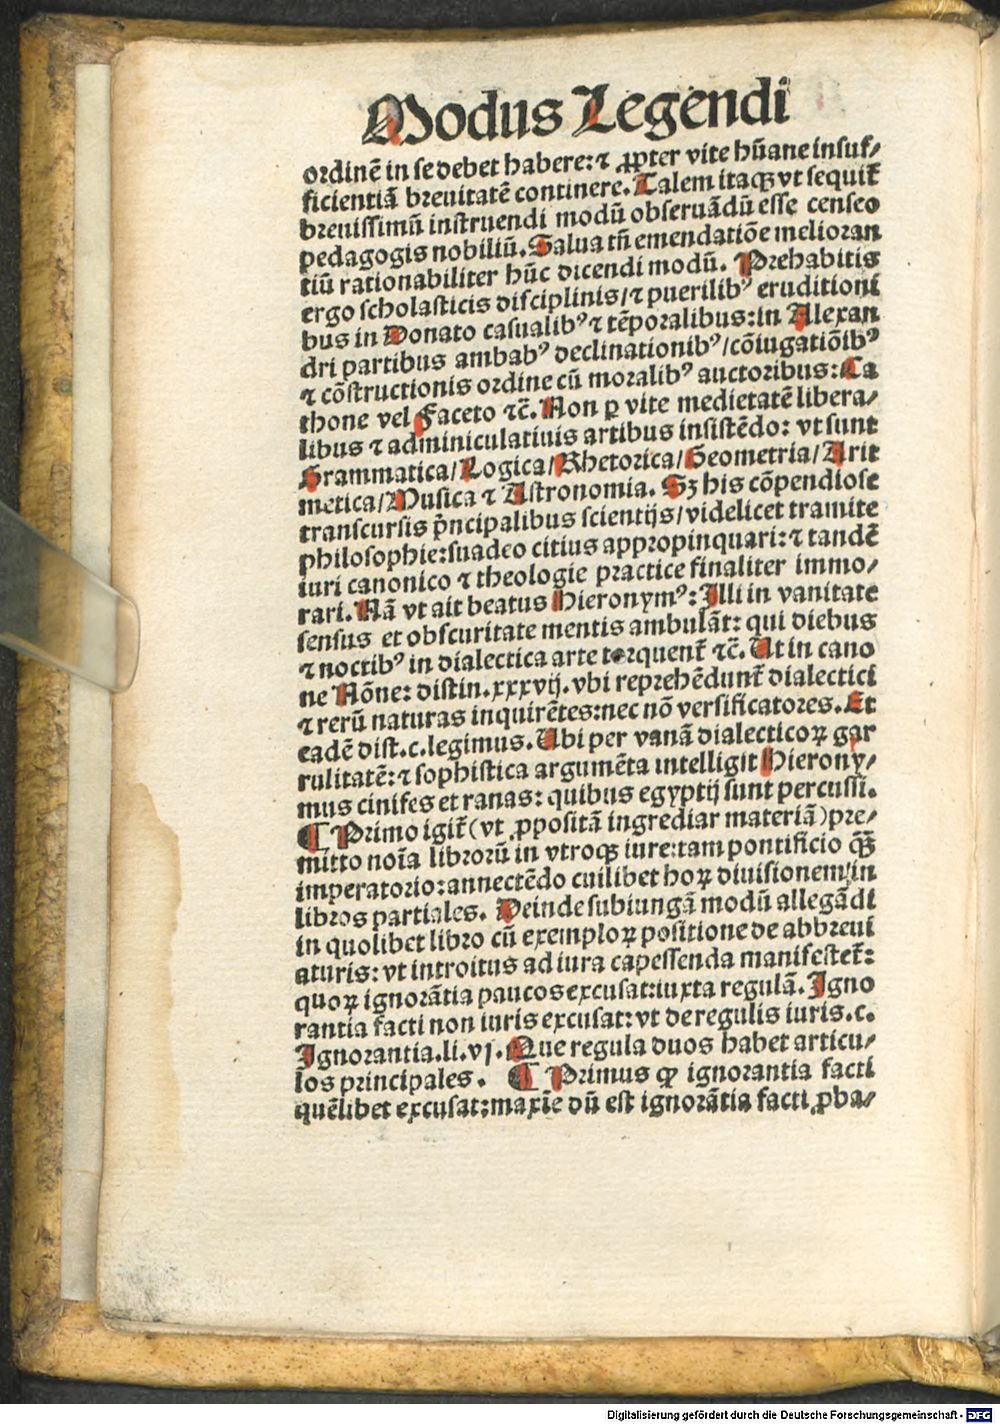 Modus Legendi
ordinē in se debet habere: ⁊ ꝓpter vite hūane insuf⸗
ficientiā breuitatē continere. Talem itaqꝫ vt sequit᷑
breuissimū instruendi modū obseruādū esse censeo
pedagogis nobiliū. Salua tñ emendatiōe melioran
tiū rationabiliter hūc dicendi modū. Prehabitis
ergo scholasticis disciplinis/ ⁊ puerilibꝰ eruditioni
bus in Donato casualibꝰ ⁊ tēporalibus: in Alexan
dri partibus ambabꝰ declinationibꝰ/ cōiugatiōibꝰ
⁊ cōstructionis ordine cū moralibꝰ auctoribus: Ca
thone vel Faceto ⁊c̄. Non ꝑ vite medietatē libera⸗
libus ⁊ adminiculatiuis artibus insistēdo: vt sunt
Grammatica/ Logica/ Rhetorica/ Geometria/ Arit
metica/ Musica ⁊ Astronomia. Sꝫ his cōpendiose
transcursis p̄ncipalibus scientijs/ videlicet tramite
philosophie: suadeo citius appropinquari: ⁊ tandē
iuri canonico ⁊ theologie practice finaliter immo⸗
rari. Nā vt ait beatus Hieronymꝰ: Illi in vanitate
sensus et obscuritate mentis ambulāt: qui diebus
⁊ noctibꝰ in dialectica arte torquent᷑ ⁊c̄. Ut in cano
ne Nōne: distin. xxxvij. vbi reprehēdunt᷑ dialectici
⁊ rerū naturas inquirētes: nec nō versificatores. Et
eadē dist. c. legimus. Ubi per vanā dialecticoꝝ gar
rulitatē: ⁊ sophistica argumēta intelligit Hierony⸗
mus cinifes et ranas: quibus egyptij sunt percussi.
¶ Primo igit᷑ (vt ꝓpositā ingrediar materiā) pre⸗
mitto noīa librorū in vtroqꝫ iure: tam pontificio qꝫ̄
imperatorio: annectēdo cuilibet hoꝝ diuisionem in
libros partiales. Deinde subiungā modū allegādi
in quolibet libro cū exemploꝝ positione de abbreui
aturis: vt introitus ad iura capessenda manifestet᷑:
quoꝝ ignorātia paucos excusat: iuxta regulā. Igno
rantia facti non iuris excusat: vt de regulis iuris. c.
Ignorantia. li. vj. Que regula duos habet articu⸗
los principales. ¶ Primus ꝙ ignorantia facti
quēlibet excusat: maxīe dū est ignorātia facti ꝓba⸗
Digitalisierung gefördert durch die Deutsche Forschungsgemeinschaft - DFG